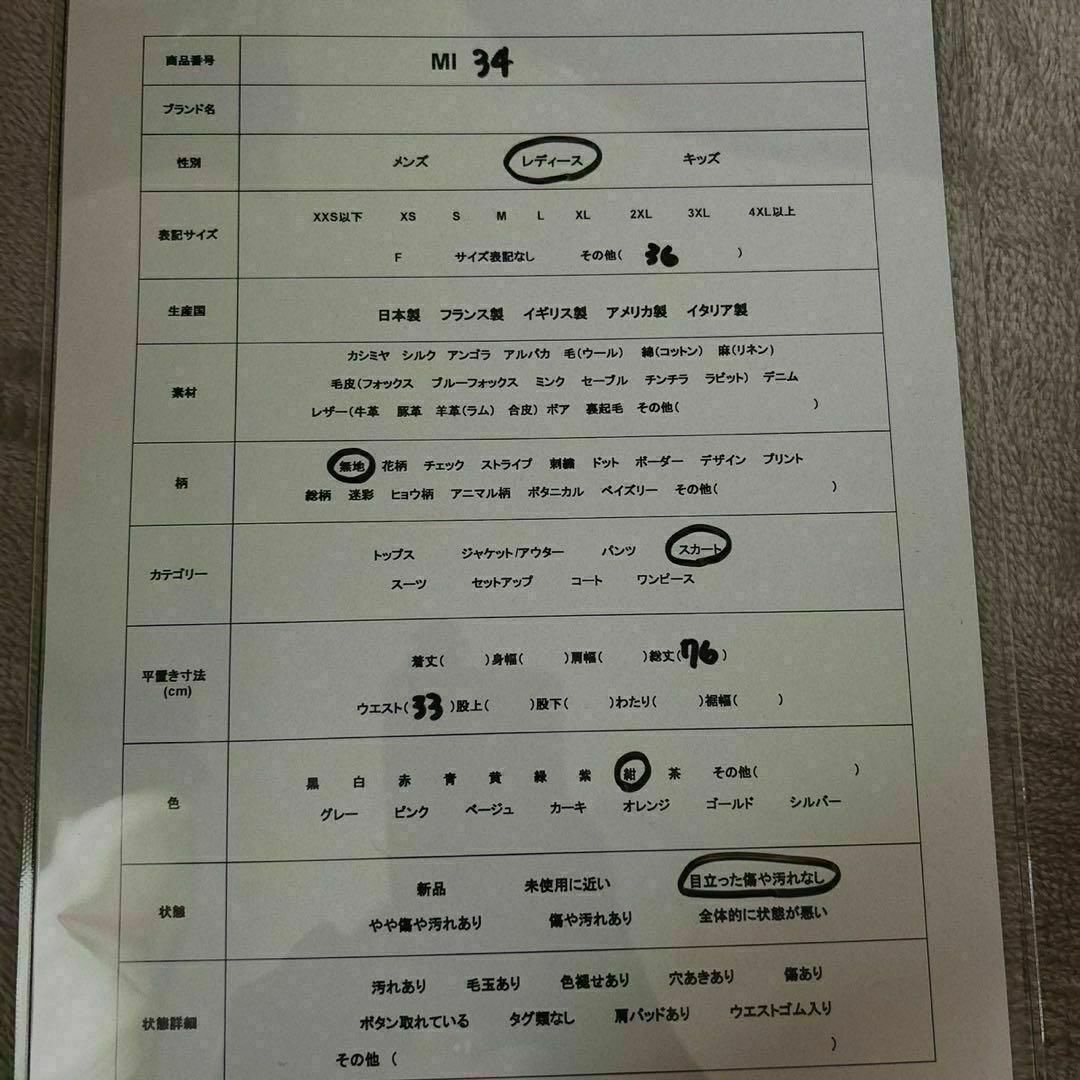 商品番号 MI 34
ブランド名
性別 メンズ レディース キッズ
XXS以下 XS S M L XL 2XL 3XL 4XL以上
表記サイズ
F サイズ表記なし その他( 36 )
生産国 日本製 フランス製 イギリス製 アメリカ製 イタリア製
カシミヤ シルク アンゴラ アルパカ 毛(ウール) 綿(コットン) 麻(リネン)
毛皮(フォックス ブルーフォックス ミンク セーブル チンチラ ラビット) デニム
素材
レザー(牛革 豚革 羊革(ラム) 合皮) ボア 裏起毛 その他( )
無地 花柄 チェック ストライプ 刺繍 ドット ボーダー デザイン プリント
柄
総柄 迷彩 ヒョウ柄 アニマル柄 ボタニカル ペイズリー その他( )
トップス ジャケット/アウター パンツ スカート
カテゴリー
スーツ セットアップ コート ワンピース
着丈( )身幅( )肩幅( )総丈(76)
平置き寸法
(cm)
ウエスト(33)股上( )股下( )わたり( )裾幅( )
黒 白 赤 青 黄 緑 紫 紺 茶 その他( )
色
グレー ピンク ベージュ カーキ オレンジ ゴールド シルバー
新品 未使用に近い 目立った傷や汚れなし
状態
やや傷や汚れあり 傷や汚れあり 全体的に状態が悪い
汚れあり 毛玉あり 色褪せあり 穴あきあり 傷あり
状態詳細 ボタン取れている タグ類なし 肩パッドあり ウエストゴム入り
その他 ( )